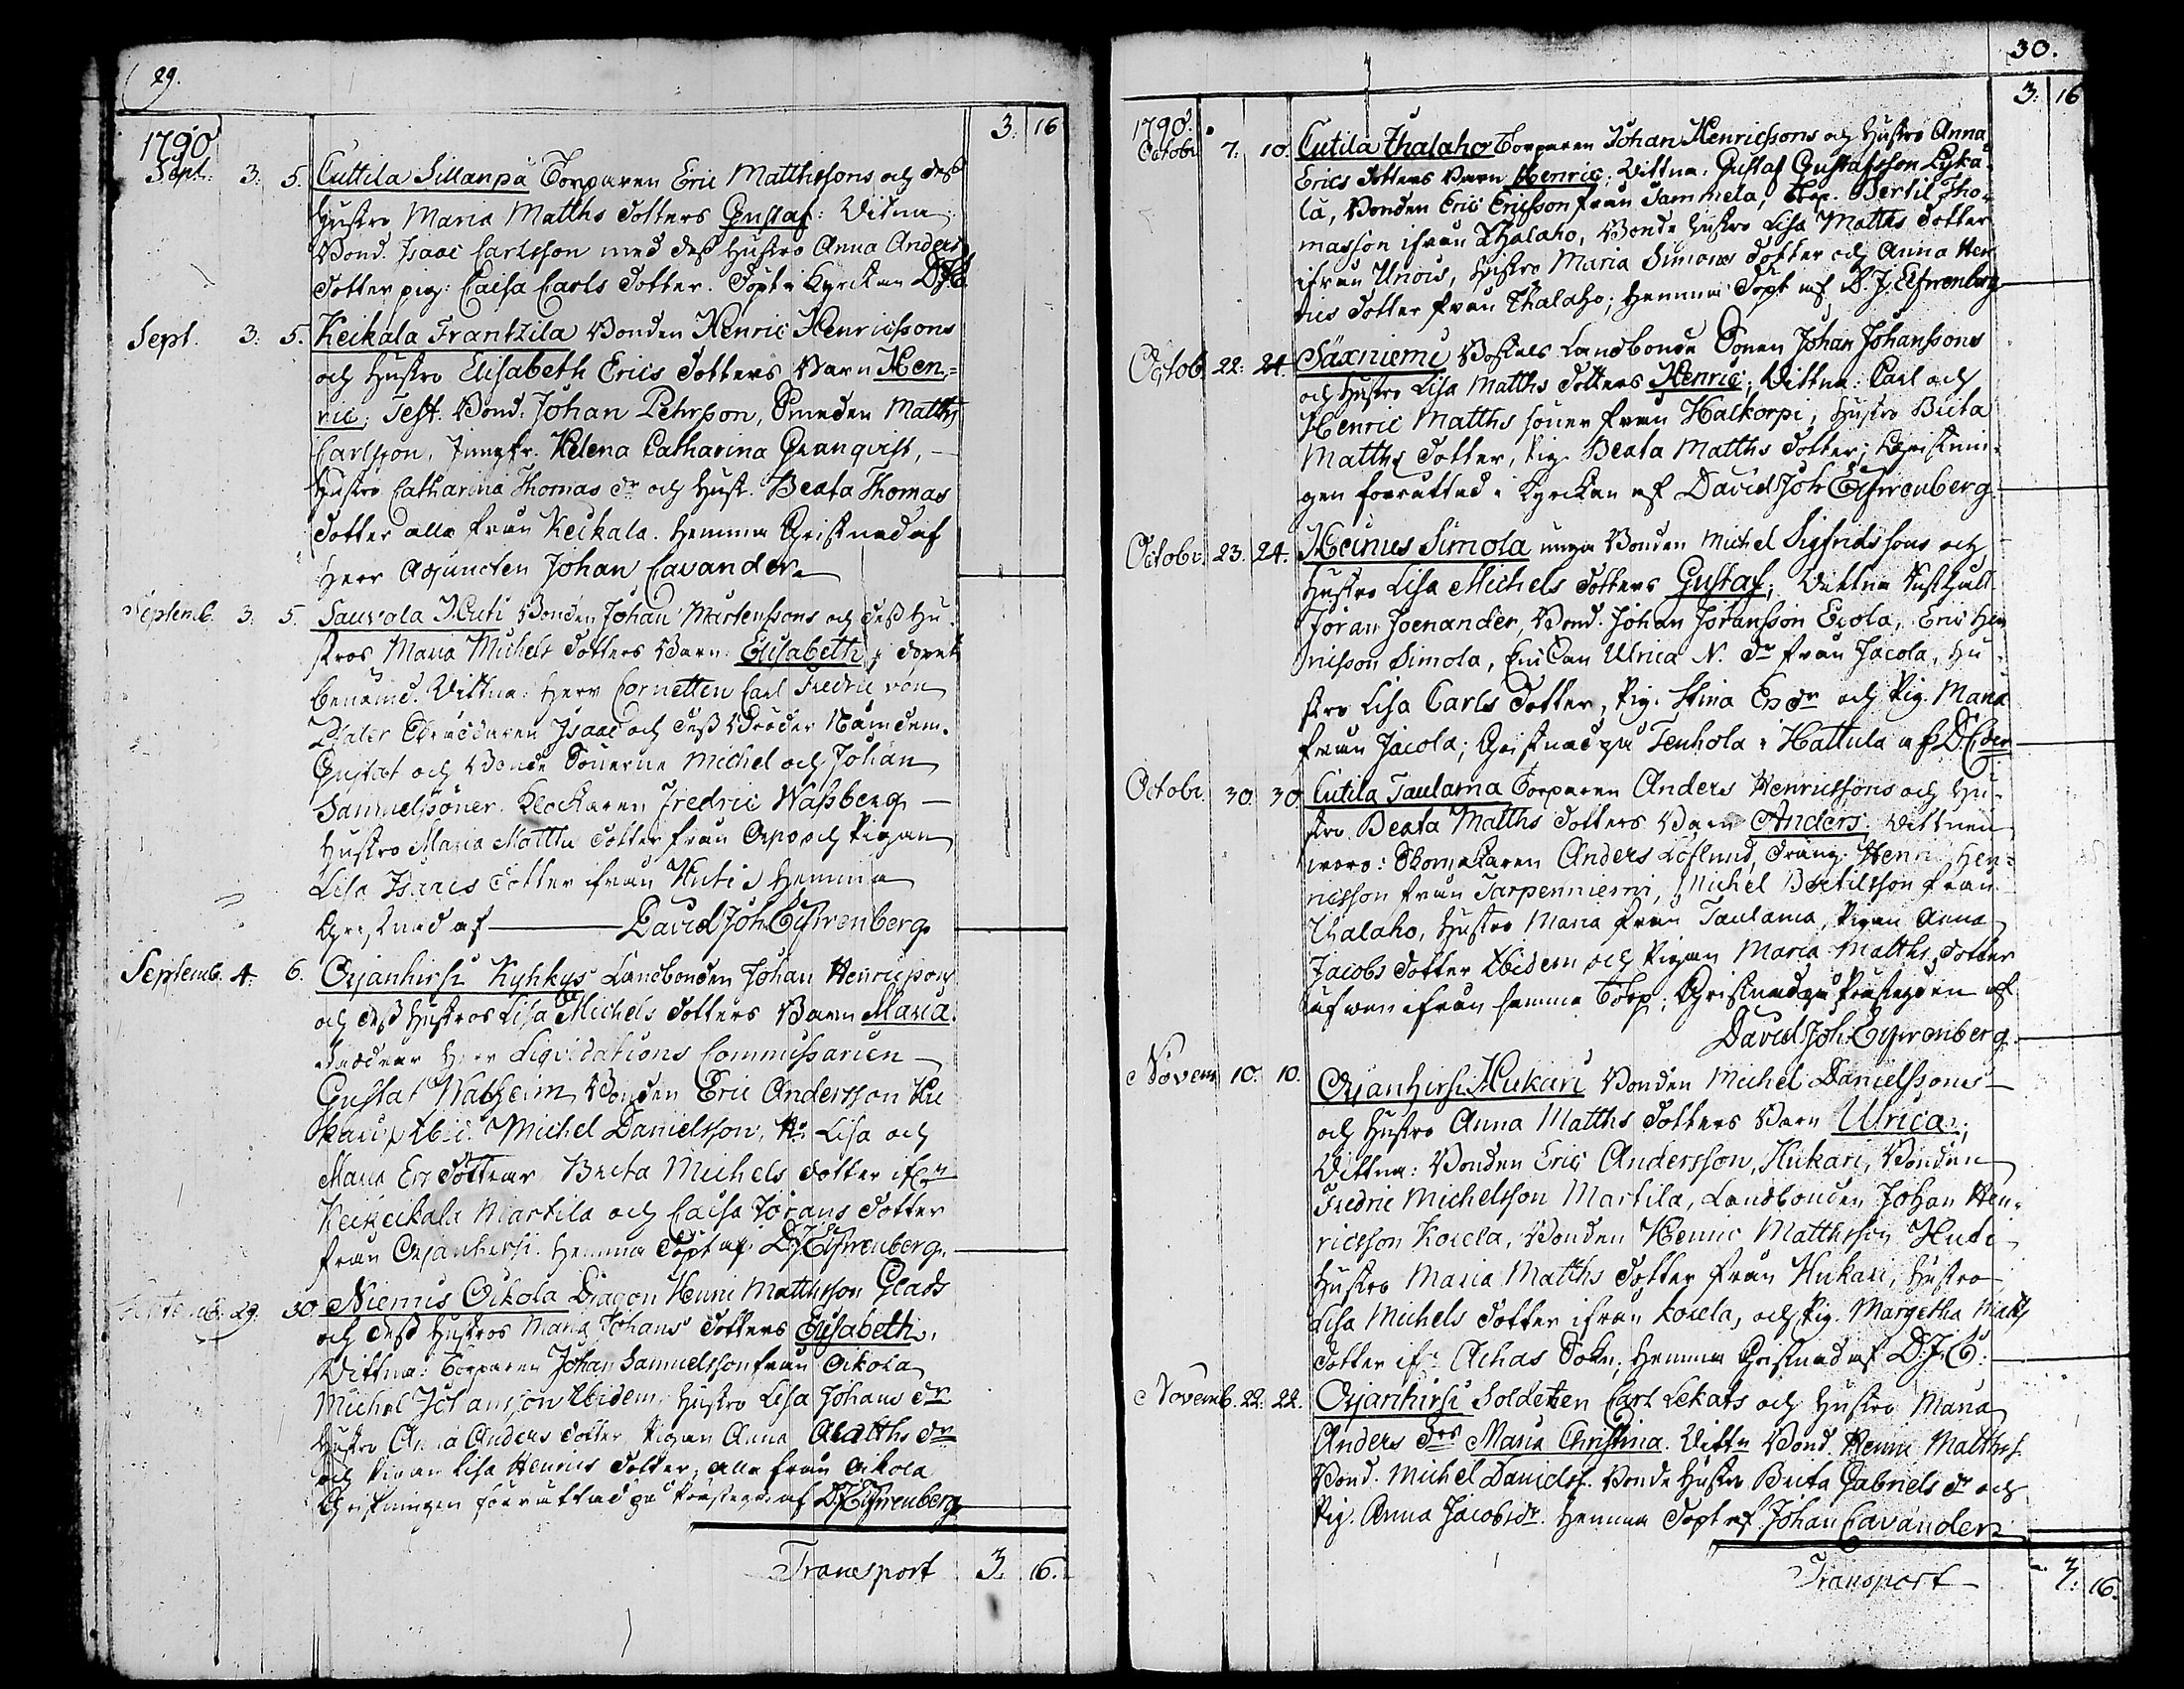 29.
3. 16
1790
Sept. 3. 5. Cuttila Sillanpä Torparen Eric Matthssons och dess
Hustro Maria Matths Dotters Gustaf: Vittna
Bond. Isaac Carlsson med dess Hustro Anna Anders
Dotter pig: Caisa Carls Dotter. Döpt i Kyrckan DJE.
Sept. 3. 5. Keikala Frantzila Bonden Henric Henricssons
och Hustro Elisabeth Erics Dotters Barn Hen-
ric; Test. Bond. Johan Pehrson, Smeden Matths
Carlsson, Jungfr. Helena Catharina Granqvist,
Hustro Catharina Thomas dr och Hust. Beata Thomas
Dotter alla från Keikala. Hemma Christnad af
Herr Adjuncten Johan Cavander.
Septemb. 3. 5. Sauvala Huti Bonden Johan Mårtenssons och dess Hu-
stros Maria Michels Dotters Barn Elisabeth;
benämd. Vittna: Herr Cornetten Carl Fredric von
Plater Isaac och dess Broder Nämdem.
Gustaf och Bonde Sönerne Michel och Johan
Samuelssöner. Klockaren Fredric Wassberg
Hustro Maria Matths Dotter från och Pigan
Lisa Isaacs Dotter ifrån Huti Hemma
Christnad af David Joh. Elfwenberg.
Septemb. 4. 6. Orjanhirsi Kyhkys Landbonden Johan Henricssons
och dess Hustros Lisa Michels Dotters Barn Maria.
Faddrar Herr Liqvidations Commissarien
Gustaf Bonden Eric Andersson Hu
kari, Ibid. Michel Danielsson, Ho. Lisa och
Maria Ers Döttrar Brita Michels Dotter ifrn
Keikala Martila och Caisa Jörans Dotter
från Orjanhirsi. Hemma Döpt af D.J. Elfwenberg.
29. 30. Niemis Oikola Dragon Henric Matthsson Glads
och dess Hustros Maria Johans Dotters Elisabeth.
Vittna: Torparen Johan Samuelsson från Oikola
Michel Johansson Ibidem, Hustro Lisa Johans dr
Hustro Anna Anders Dotter Pigan Anna Matths dr
och Pigan Lisa Henrics Dotter, alla från Oikola
Christningen förrättad på Prästeg. af D.J. Elfwenberg
Transport 3. 16.
30.
3. 16
1790.
Octobr. 7. 10. Cutila Thalaho Torparen Johan Henricssons och Hustro Anna
Erics Dotters Barn Henric; Vittna: Gustaf Gustafsson Lyka-
lä, Bonden Eric Ericsson från Sammela, Torp. Bertil Tho-
masson ifrån Thalaho, Bonde Hustro Lisa Matths Dotter
ifrån Unois, Hustro Maria Simons Dotter och Anna Hen-
rics Dotter från Thalaho; Hemma Döpt af D.J. Elfwenberg
Octob. 22. 24. Säxniemi Bostels Landbonde Sonen Johan Johanssons
och Hustro Lisa Matths Dotters Henric; Vittna: Carl och
Henric Matths söner från Halkorpi, Hustro Brita
Matths Dotter, Pig. Beata Matths Dotter; Christnin-
gen förrättad i Kyrckan af David Joh. Elfwenberg.
Octobr. 23. 24. Heinus Simola unga Bonden Michel Sigfridssons och
Hustro Lisa Michels Dotters Gustaf; Vittna Rusthåll.
Jöran Joenander, Bond. Johan Johansson Eçola, Eric Hen
ricsson Simola, Enckan Ulrica N. dr från Jacola, Hu-
stro Lisa Carls Dotter, Pig. Stina Ers dr och Pig. Maria
från Jacola; Christnad på Tenhola i Hattula af
Octobr. 30 30 Cutila Taulama Torparen Anders Henricssons och Hu-
stro Beata Matths Dotters Barn Anders. Vittnen
woro: Skomakaren Anders Löflund, Dräng. Henric Hen-
ricsson från Tarpenniemi, Michel Bertilsson från
Thalaho, Hustro Maria från Taulama, Pigan Anna
Jacobs Dotter Ibidem och Pigan Maria Matths Dotter
äfwen ifrån samma Torp; Christnad på Prästegården af
David Joh. Elfwenberg.
Novem. 10. 10. Orjanhirsi Hukari Bonden Michel Danielssons
och Hustro Anna Matths Dotters Barn Ulrica;
Vittna: Bonden Eric Andersson, Hukari, Bonden
Fredric Michelsson Martila, Landbonden Johan Hen-
ricsson Koiela, Bonden Henric Matthsson Huti
Hustro Maria Matths Dotter från Hukari, Hustro
Lisa Michels Dotter ifrån Koiela, och Pig. Margetha Mich
Dotter ifr. Achas Sokn; Hemma Christnad af D.J.E.
Novemb. 22. 22. Orjanhirsi Soldaten Carl Lekats och Hustro Maria
Anders drs Maria Christina. Vittn Bond. Henric Matths.
Bond. Michel Danielss. Bonde Hustro Brita Gabriels dr och
Pig. Anna Jacobs dr. Hemma Döpt af Johan Cavander
Transport 3. 16.